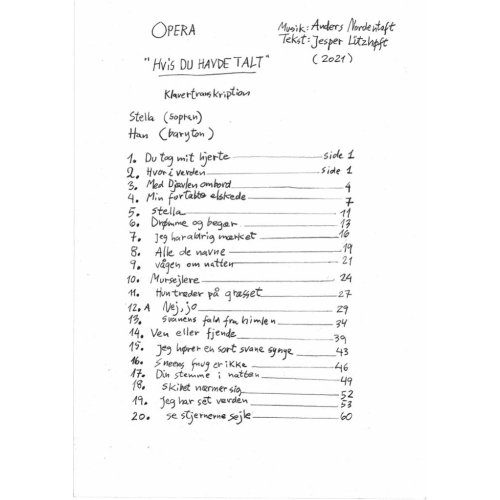 OPERA
Musik: Anders Nordentoft
Tekst: Jesper Litzhøft
"HVIS DU HAVDE TALT"
(2021)
Klavertranskription
Stella (sopran)
Han (baryton)
1. Du tog mit hjerte side 1
2. Hvor i verden side 1
3. Med Djævlen ombord 4
4. Min fortabte elskede 7
5. Stella 11
6. Drømme og begær 13
7. Jeg har aldrig mærket 16
8. Alle de navne 19
9. vågen om natten 21
10. Mursejlere 24
11. Hun træder på græsset 27
12. A Nej, jo 29
13. svanens fald fra himlen 34
14. Ven eller fjende 39
15. Jeg hører en sort svane synge 43
16. Sneens fnug er ikke 46
17. Din stemme i natten 49
18. skibet nærmer sig 52
19. Jeg har set verden 53
20. se stjernerne sejle 60